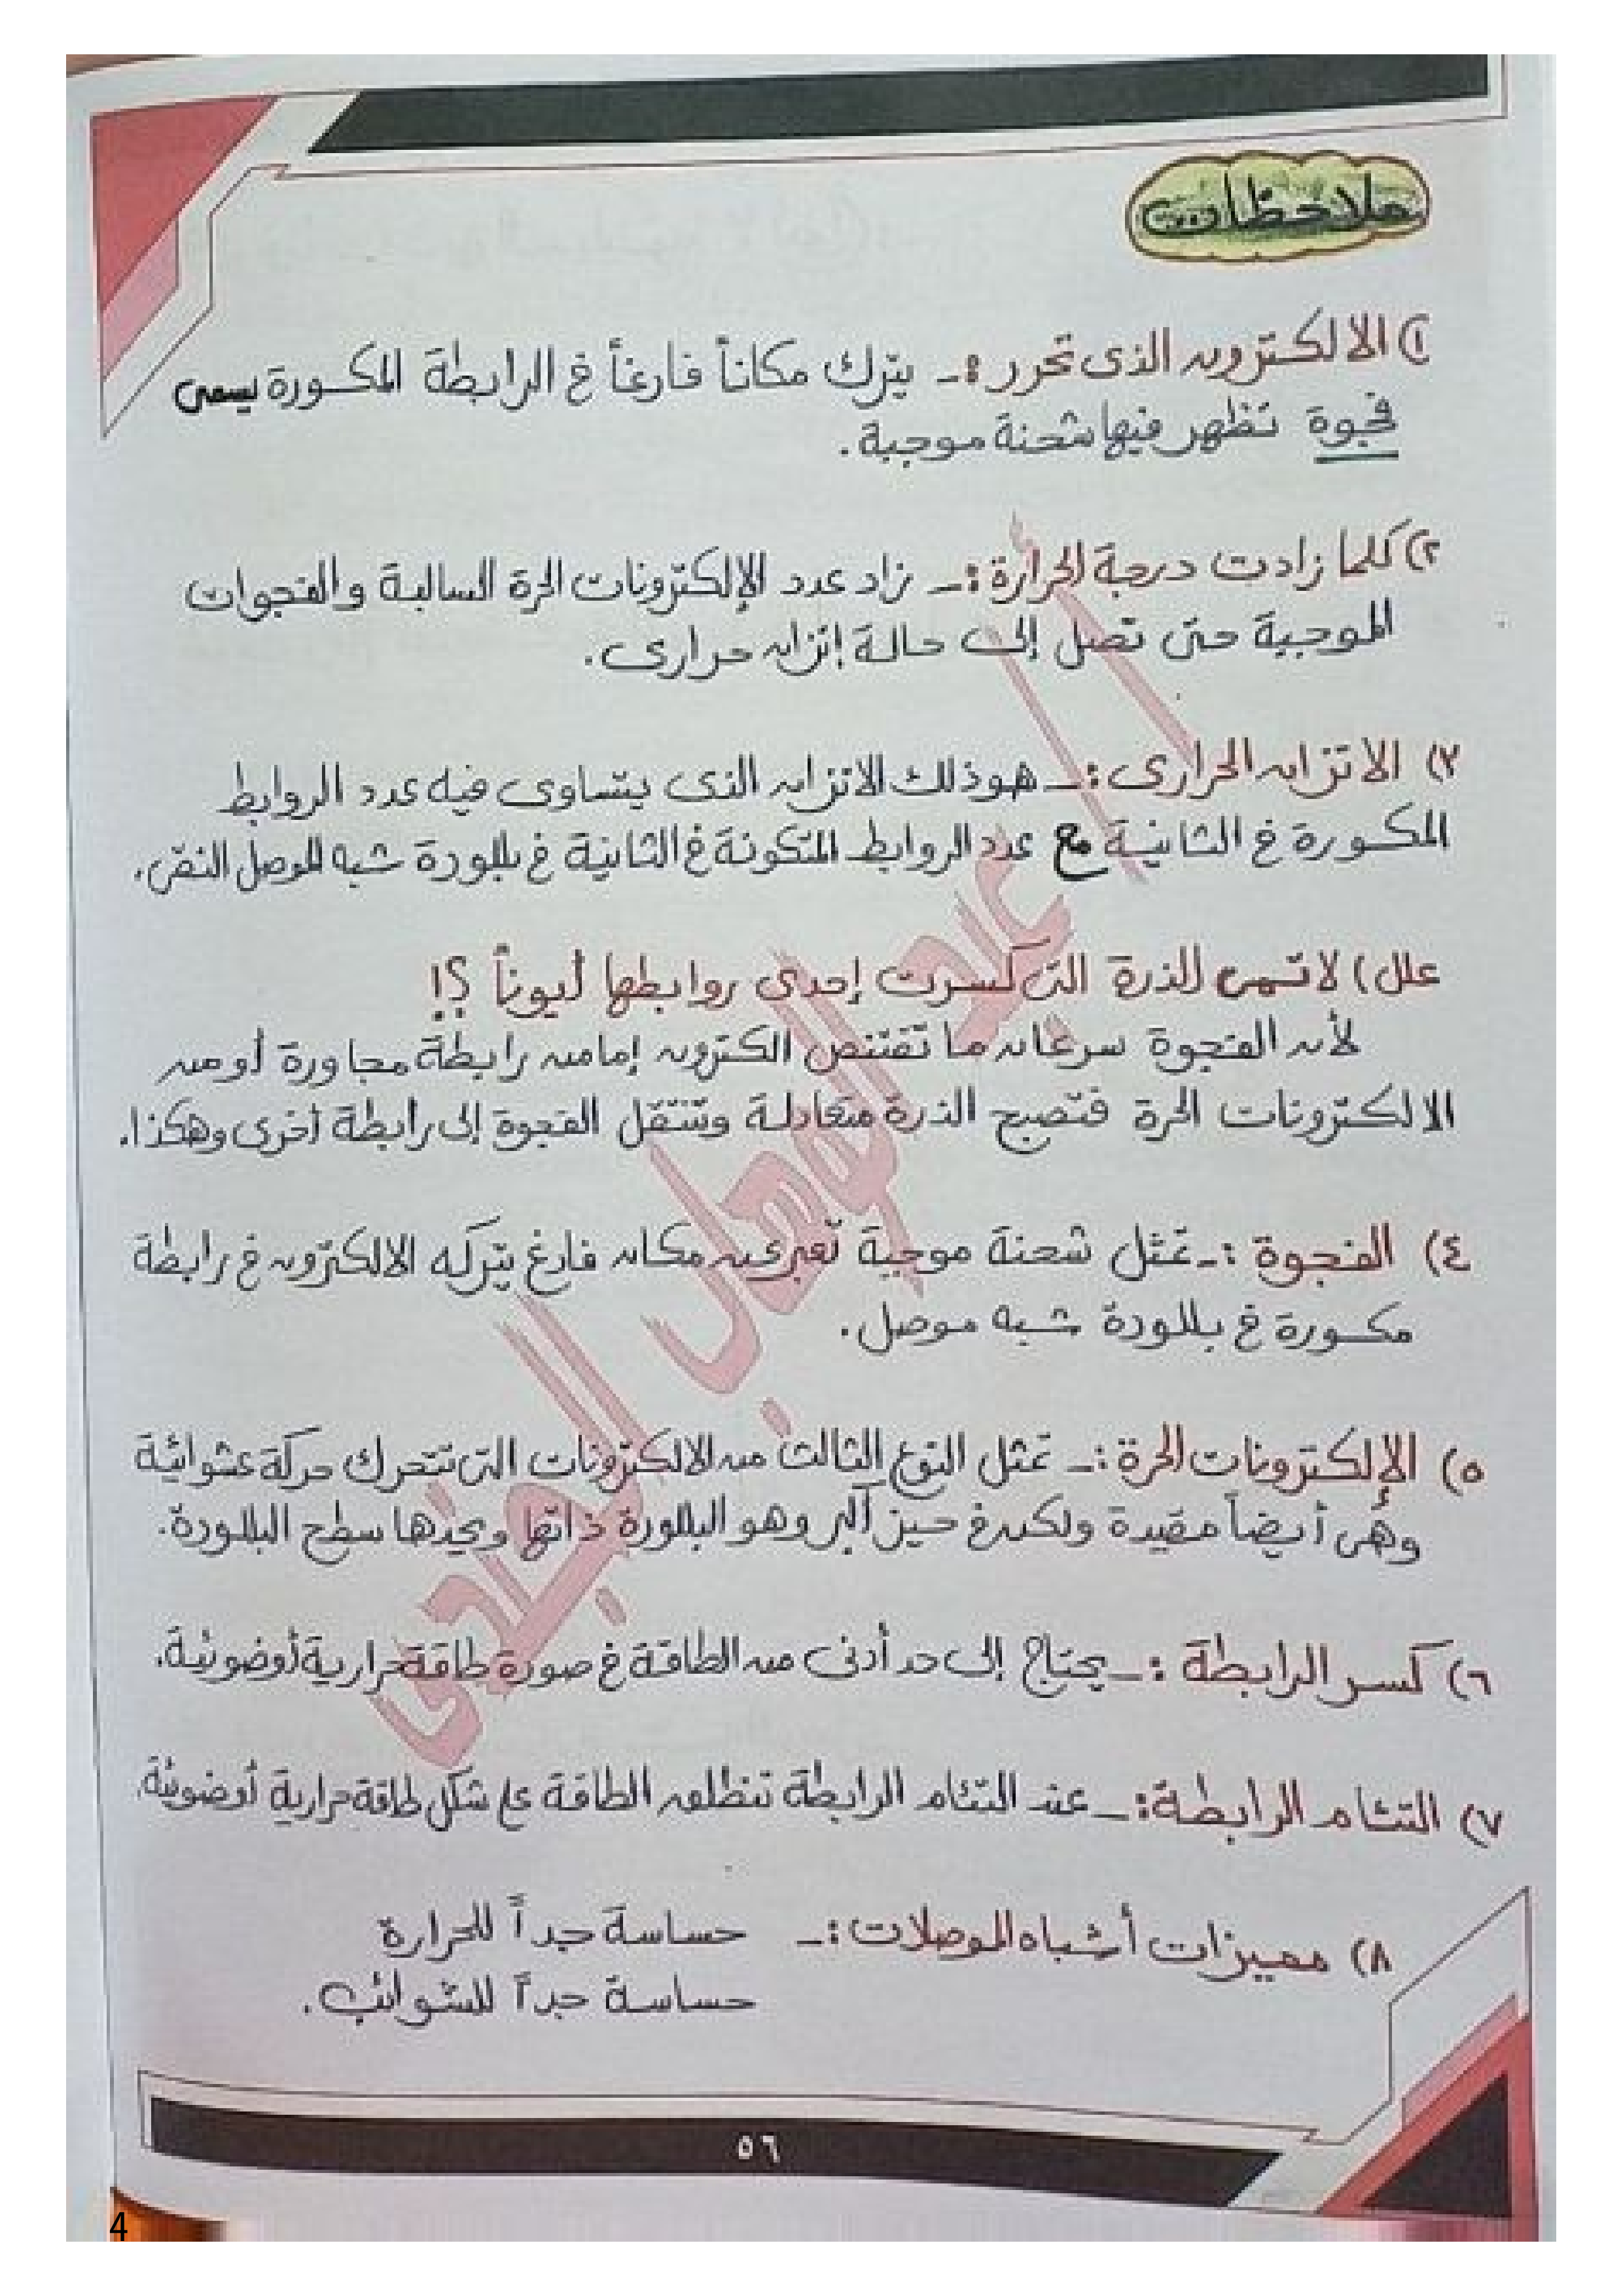 ملاحظات
١) الالكترون الذى تحرر :- يترك مكاناً فارغاً فى الرابطة المكسورة يسمى
فجوة تظهر فيها شحنة موجبة.
٢) كلما زادت درجة الحرارة :- زاد عدد الإلكترونات الحرة السالبة والفجوات
الموجبة حتى تصل إلى حالة إتزان حرارى.
٣) الاتزان الحرارى :- هو ذلك الاتزان الذى يتساوى فيه عدد الروابط
المكسورة فى الثانية مع عدد الروابط المتكونة فى الثانية فى بللورة شبه الموصل النقى.
علل) لا تسمى الذرة التى كسرت إحدى روابطها أيوناً ؟!
لأن الفجوة سرعان ما تقتنص الكترون إما من رابطة مجاورة أو من
الالكترونات الحرة فتصبح الذرة متعادلة وتنتقل الفجوة إلى رابطة أخرى وهكذا.
٤) الفجوة :- تمثل شحنة موجبة تعبر عن مكان فارغ يتركه الالكترون فى رابطة
مكسورة فى بللورة شبه موصل.
٥) الإلكترونات الحرة :- تمثل النوع الثالث من الالكترونات التى تتحرك حركة عشوائية
وهى أيضاً مقيدة ولكن فى حيز أكبر وهو البللورة ذاتها ويحدها سطح البللورة.
٦) كسر الرابطة :- يحتاج إلى حد أدنى من الطاقة فى صورة طاقة حرارية أو ضوئية.
٧) التئام الرابطة :- عند التئام الرابطة تنطلق الطاقة على شكل طاقة حرارية أو ضوئية.
٨) مميزات أشباه الموصلات :- حساسة جداً للحرارة
حساسة جداً للشوائب.
٥٦
4